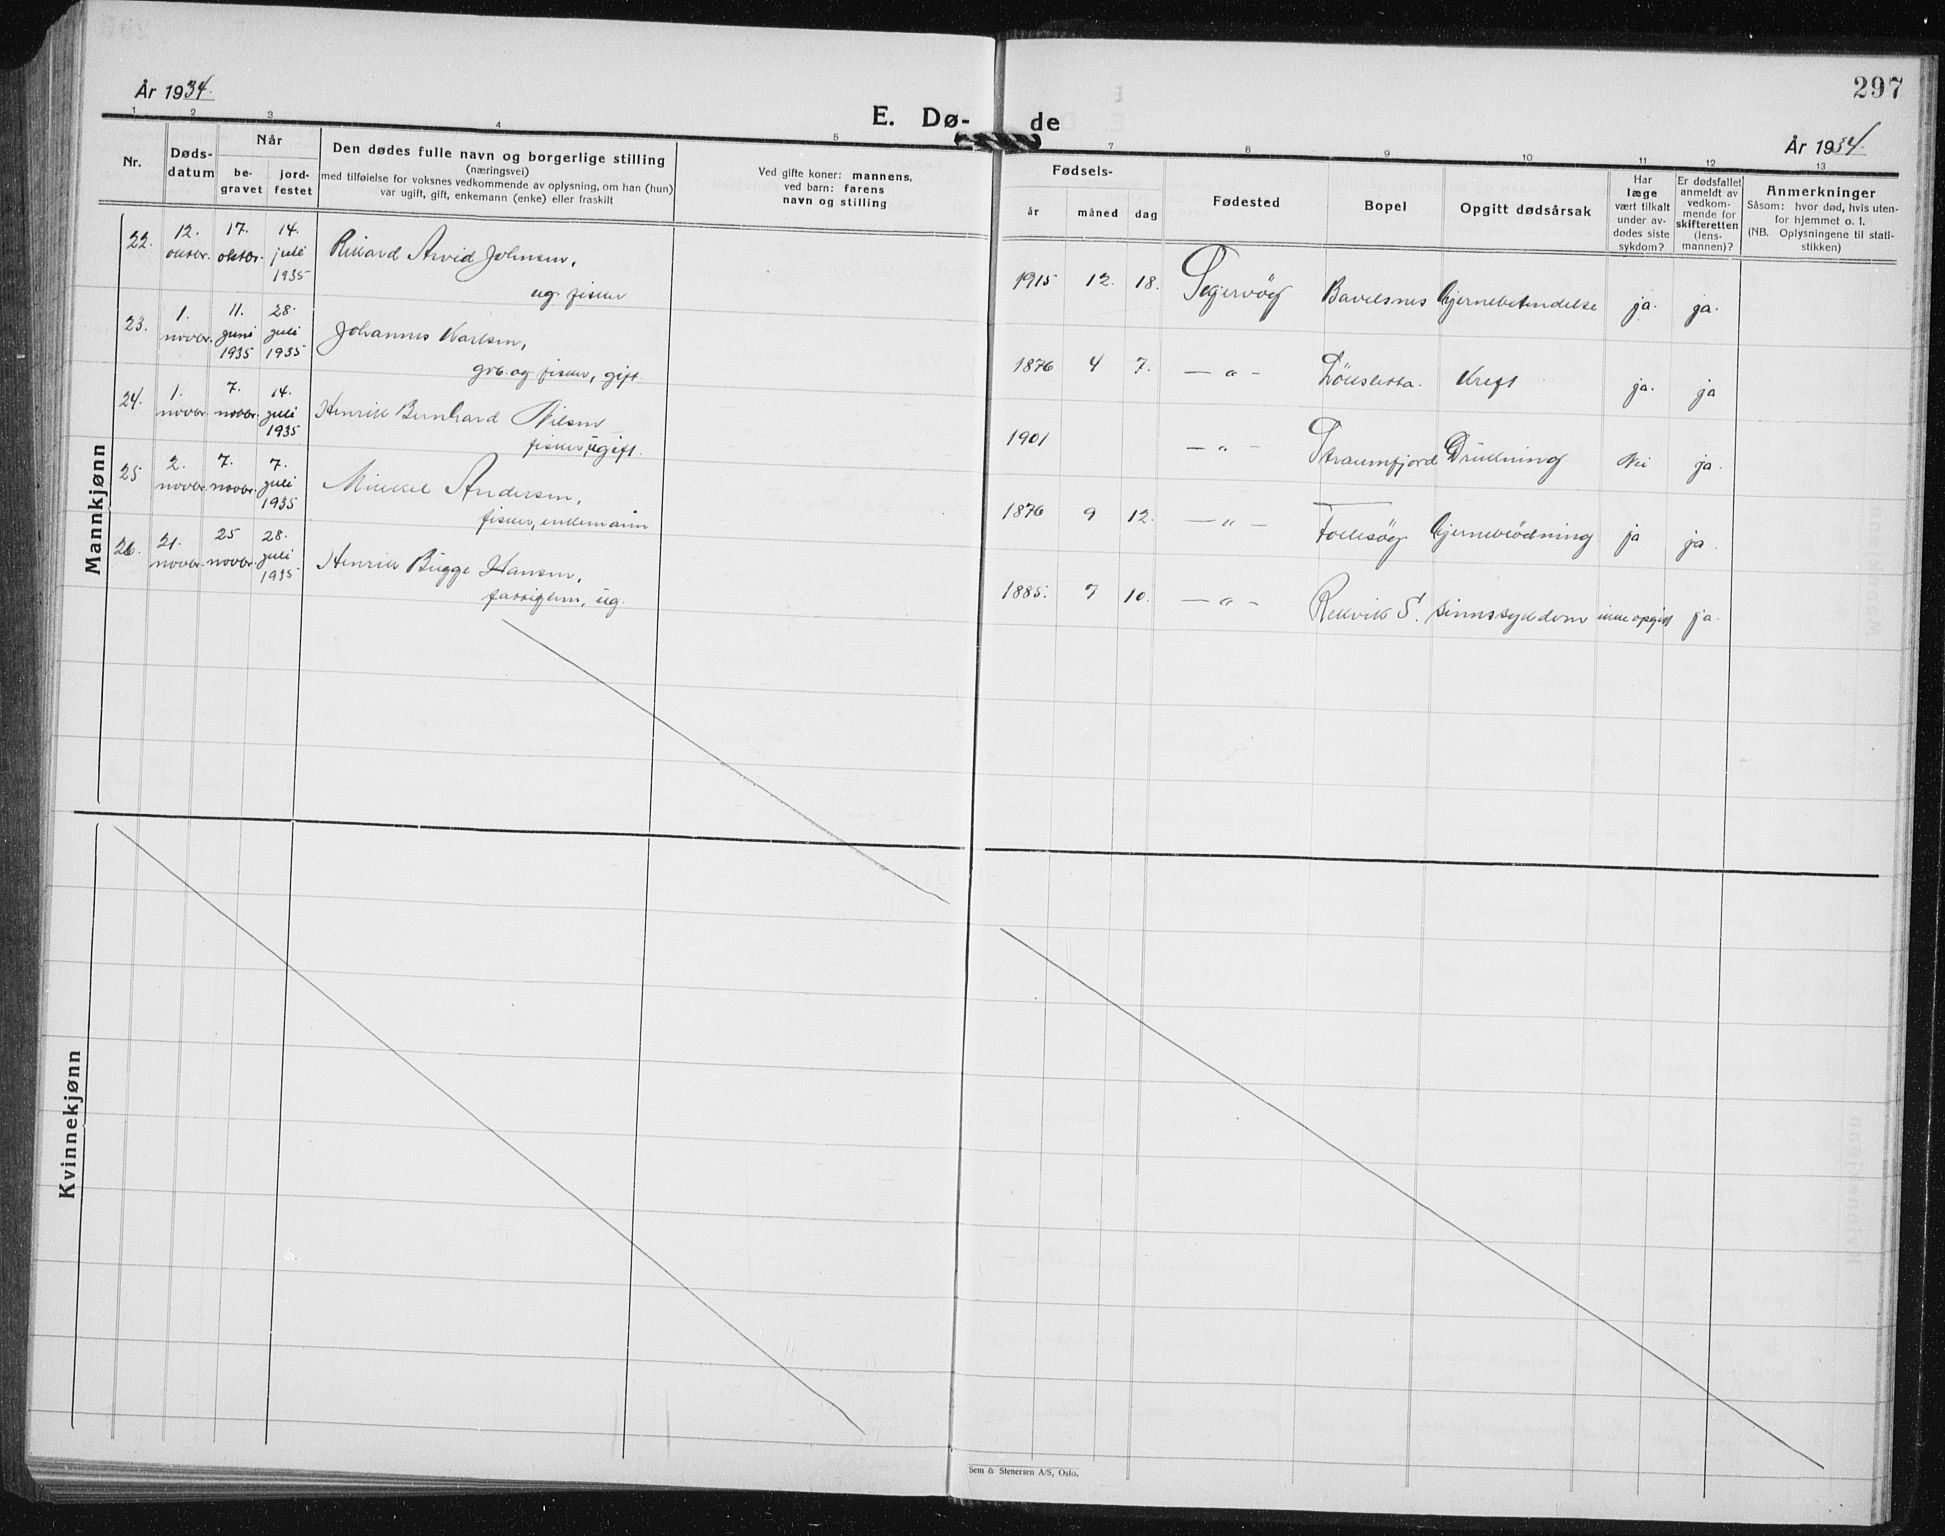 297
År 1934.
E. Dø-
de
År 1934.
1 2 3 4 5 7 8 9 10 11 12 13
Nr.
Døds-
datum
Når
be-
gravet
jord-
festet
Den dødes fulle navn og borgerlige stilling
(næringsvei)
med tilføielse for voksnes vedkommende av oplysning, om han (hun)
var ugift, gift, enkemann (enke) eller fraskilt
Ved gifte koner: mannens,
ved barn: farens
navn og stilling
Fødsels-
år måned dag
Fødested
Bopel
Opgitt dødsårsak
Har
læge
vært tilkalt
under av-
dødes siste
sykdom?
Er dødsfallet
anmeldt av
vedkom-
mende for
skifteretten
(lens-
mannen)?
Anmerkninger
Såsom: hvor død, hvis uten-
for hjemmet o. l.
(NB. Oplysningene til stati-
stikken)
Mannkjønn
22. 12. oktbr. 17. oktbr. 14. juli 1935 Rikard Arvid Johnsen,
ug. fisker
1915 12. 18. Segervåg Bavelsnes hjernebetendelse ja. ja.
23. 1. novbr. 11. juni 1935 28. juli 1935 Johannes Karlsen,
grb. og fisker, gift.
1876 4 7. — " — Kreft ja. ja
24. 1. novbr. 7. novbr. 14. juli 1935 Henrik Bernhard Nilsen
fisker, ugift.
1901 — " — Straumfjord Drukning Nei ja.
25 2. novbr. 7. novbr. 7. juli 1935 Mikkel Andersen,
fisker, enkemann
1876 9 12. — " — hjerneblødning ja ja.
26. 21. novbr. 25 novbr. 28. juli 1935 Henrik Bugge Hansen,
fattiglem, ug.
1885. 7 10. — " — Rekvik S. sinnssykdom ikke opgitt ja.
Kvinnekjønn
Sem & Stenersen A/S, Oslo.